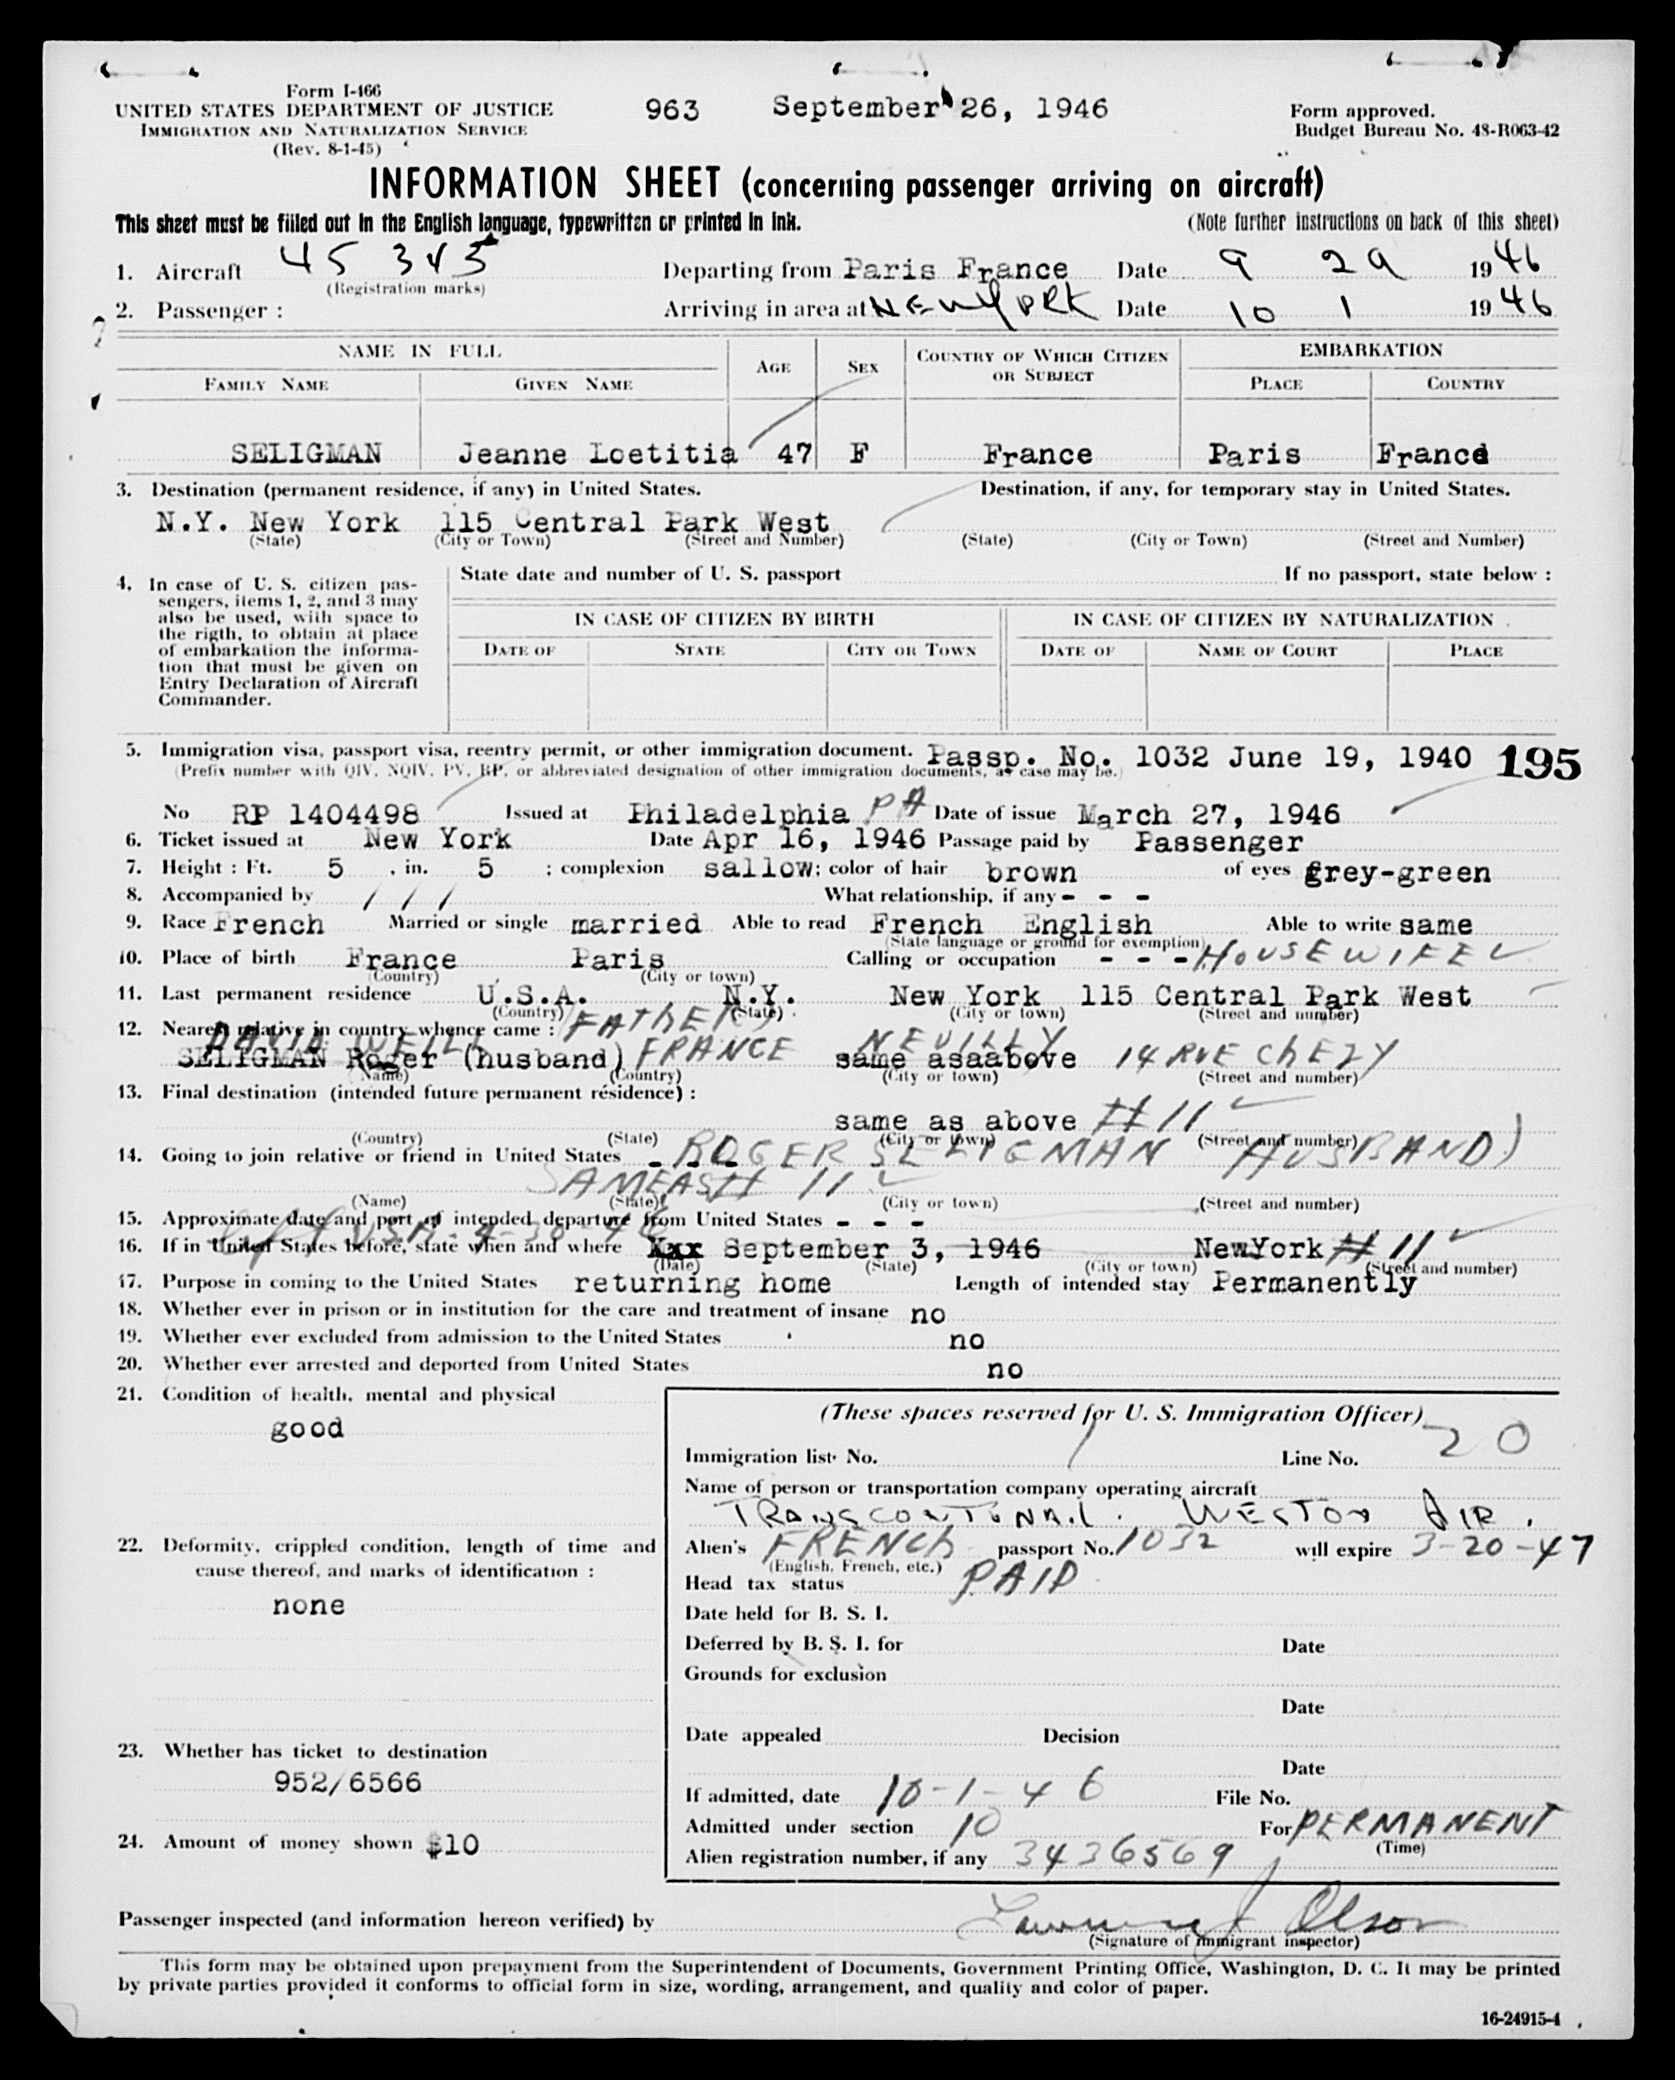 Form I-466
UNITED STATES DEPARTMENT OF JUSTICE 963 September 26, 1946 Form approved.
IMMIGRATION AND NATURALIZATION SERVICE Budget Bureau No. 48-R063-42
(Rev. 8-1-45)
INFORMATION SHEET (concerning passenger arriving on aircraft)
This sheet must be filled out in the English language, typewritten or printed in ink. (Note further instructions on back of this sheet)
1. Aircraft 45 345 Departing from Paris France Date 9 29 1946
(Registration marks)
2. Passenger : Arriving in area at NEW YORK Date 10 1 1946
NAME IN FULL AGE SEX COUNTRY OF WHICH CITIZEN OR SUBJECT EMBARKATION
FAMILY NAME GIVEN NAME PLACE COUNTRY
SELIGMAN Jeanne Loetitia 47 F France Paris France
3. Destination (permanent residence, if any) in United States. Destination, if any, for temporary stay in United States.
N.Y. New York 115 Central Park West
(State) (City or Town) (Street and Number) (State) (City or Town) (Street and Number)
4. In case of U. S. citizen pas- State date and number of U. S. passport If no passport, state below :
sengers, items 1, 2, and 3 may
also be used, with space to IN CASE OF CITIZEN BY BIRTH IN CASE OF CITIZEN BY NATURALIZATION
the rigth, to obtain at place
of embarkation the informa- DATE OF STATE CITY OR TOWN DATE OF NAME OF COURT PLACE
tion that must be given on
Entry Declaration of Aircraft
Commander.
5. Immigration visa, passport visa, reentry permit, or other immigration document. Passp. No. 1032 June 19, 1940 195
(Prefix number with QIV, NQIV, PV, RP, or abbreviated designation of other immigration documents, as case may be.)
No RP 1404498 Issued at Philadelphia PA Date of issue March 27, 1946
6. Ticket issued at New York Date Apr 16, 1946 Passage paid by Passenger
7. Height : Ft. 5 , in. 5 ; complexion sallow; color of hair brown of eyes grey-green
8. Accompanied by / / / What relationship, if any - - -
9. Race French Married or single married Able to read French English Able to write same
(State language or ground for exemption)
10. Place of birth France Paris Calling or occupation - - - HOUSEWIFE
(Country) (City or town)
11. Last permanent residence U.S.A. N.Y. New York 115 Central Park West
(Country) (State) (City or town) (Street and number)
12. Nearest relative in country whence came : FATHER)
DAVID WEILL NEUILLY
SELIGMAN Roger (husband) FRANCE same asaabove 14 RUE CHEZY
(Name) (Country) (City or town) (Street and number)
13. Final destination (intended future permanent résidence) :
same as above # 11
(Country) (State) (City or town) (Street and number)
14. Going to join relative or friend in United States - - - ROGER SELIGMAN HUSBAND)
SAME AS # 11
(Name) (State) (City or town) (Street and number)
15. Approximate date and port of intended departure from United States - - -
left USA - 4-30-46
16. If in United States before, state when and where September 3, 1946 NewYork # 11
(Date) (State) (City or town) (Street and number)
17. Purpose in coming to the United States returning home Length of intended stay Permanently
18. Whether ever in prison or in institution for the care and treatment of insane no
19. Whether ever excluded from admission to the United States no
20. Whether ever arrested and deported from United States no
21. Condition of health, mental and physical
good
(These spaces reserved for U. S. Immigration Officer)
Immigration list No. 1 Line No. 20
Name of person or transportation company operating aircraft
TRANSCONTINAL. WESTON AIR.
22. Deformity, crippled condition, length of time and cause thereof, and marks of identification :
none
Alien's FRENCH passport No. 1032 will expire 3-20-47
(English, French, etc.)
Head tax status PAID
Date held for B. S. I.
Deferred by B. S. I. for Date
Grounds for exclusion
Date
Date appealed Decision
Date
23. Whether has ticket to destination
952/6566
If admitted, date 10-1-46 File No.
Admitted under section 10 For PERMANENT
(Time)
24. Amount of money shown $10
Alien registration number, if any 3436569
Passenger inspected (and information hereon verified) by Lawrence J Olson
(Signature of immigrant inspector)
This form may be obtained upon prepayment from the Superintendent of Documents, Government Printing Office, Washington, D. C. It may be printed
by private parties provided it conforms to official form in size, wording, arrangement, and quality and color of paper.
16-24915-1